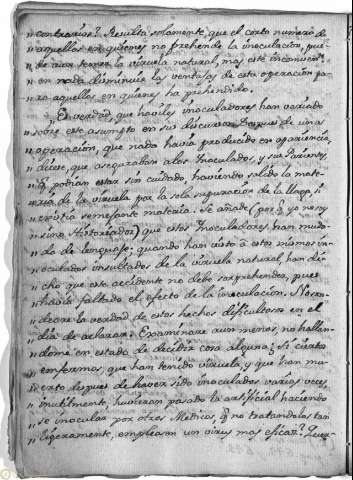 " contrarias? Resulta solamente, que el corto numero de
" aquellas en quienes no prehende la inoculacion, pue-
" de aun temer la viruela natural, mas este inconvente.
" en nada disminuie las ventajas de esta operacion pa-
" ra aquellas en quienes ha prehendido.
" Es verdad, que haviles inoculadores han variado
" sobre este assumpto en sus discursos. Despues de unas
" operacion, que nada havia producido en apariencia,
" dice, que aseguraban a los Inoculados, y sus Parientes,
" q. podian estar sin cuidado, haviendo salido la mate-
" ria de la viruela por la sola supuracion de la llaga, si
" existia semejante materia. Se añade (por q. yo no soy
" sino Historiador) que estos Inoculadores han muda-
" do de lenguaje; quando han visto a estos mismos ino-
" culados insultados de la viruela natural, han di-
" cho que este accidente no debe sorprehender, pues
" havia faltado el efecto de la inoculacion. No se
" decir la verdad de estos hechos dificultosos en el
" dia de aclarar. Examinare aun menos, no hallan-
" dome en estado de decidir cosa alguna; si ciertos
" enfermos, que han tenido viruela, y que han mu-
" erto despues de haver sido inoculados varias veces,
" inutilmente, huvieran pasado la artificial haciendo
" se inocular por otros Medicos, q. no tratandolos tan
" ligeramente, emplean un virus mas eficaz? Quer-